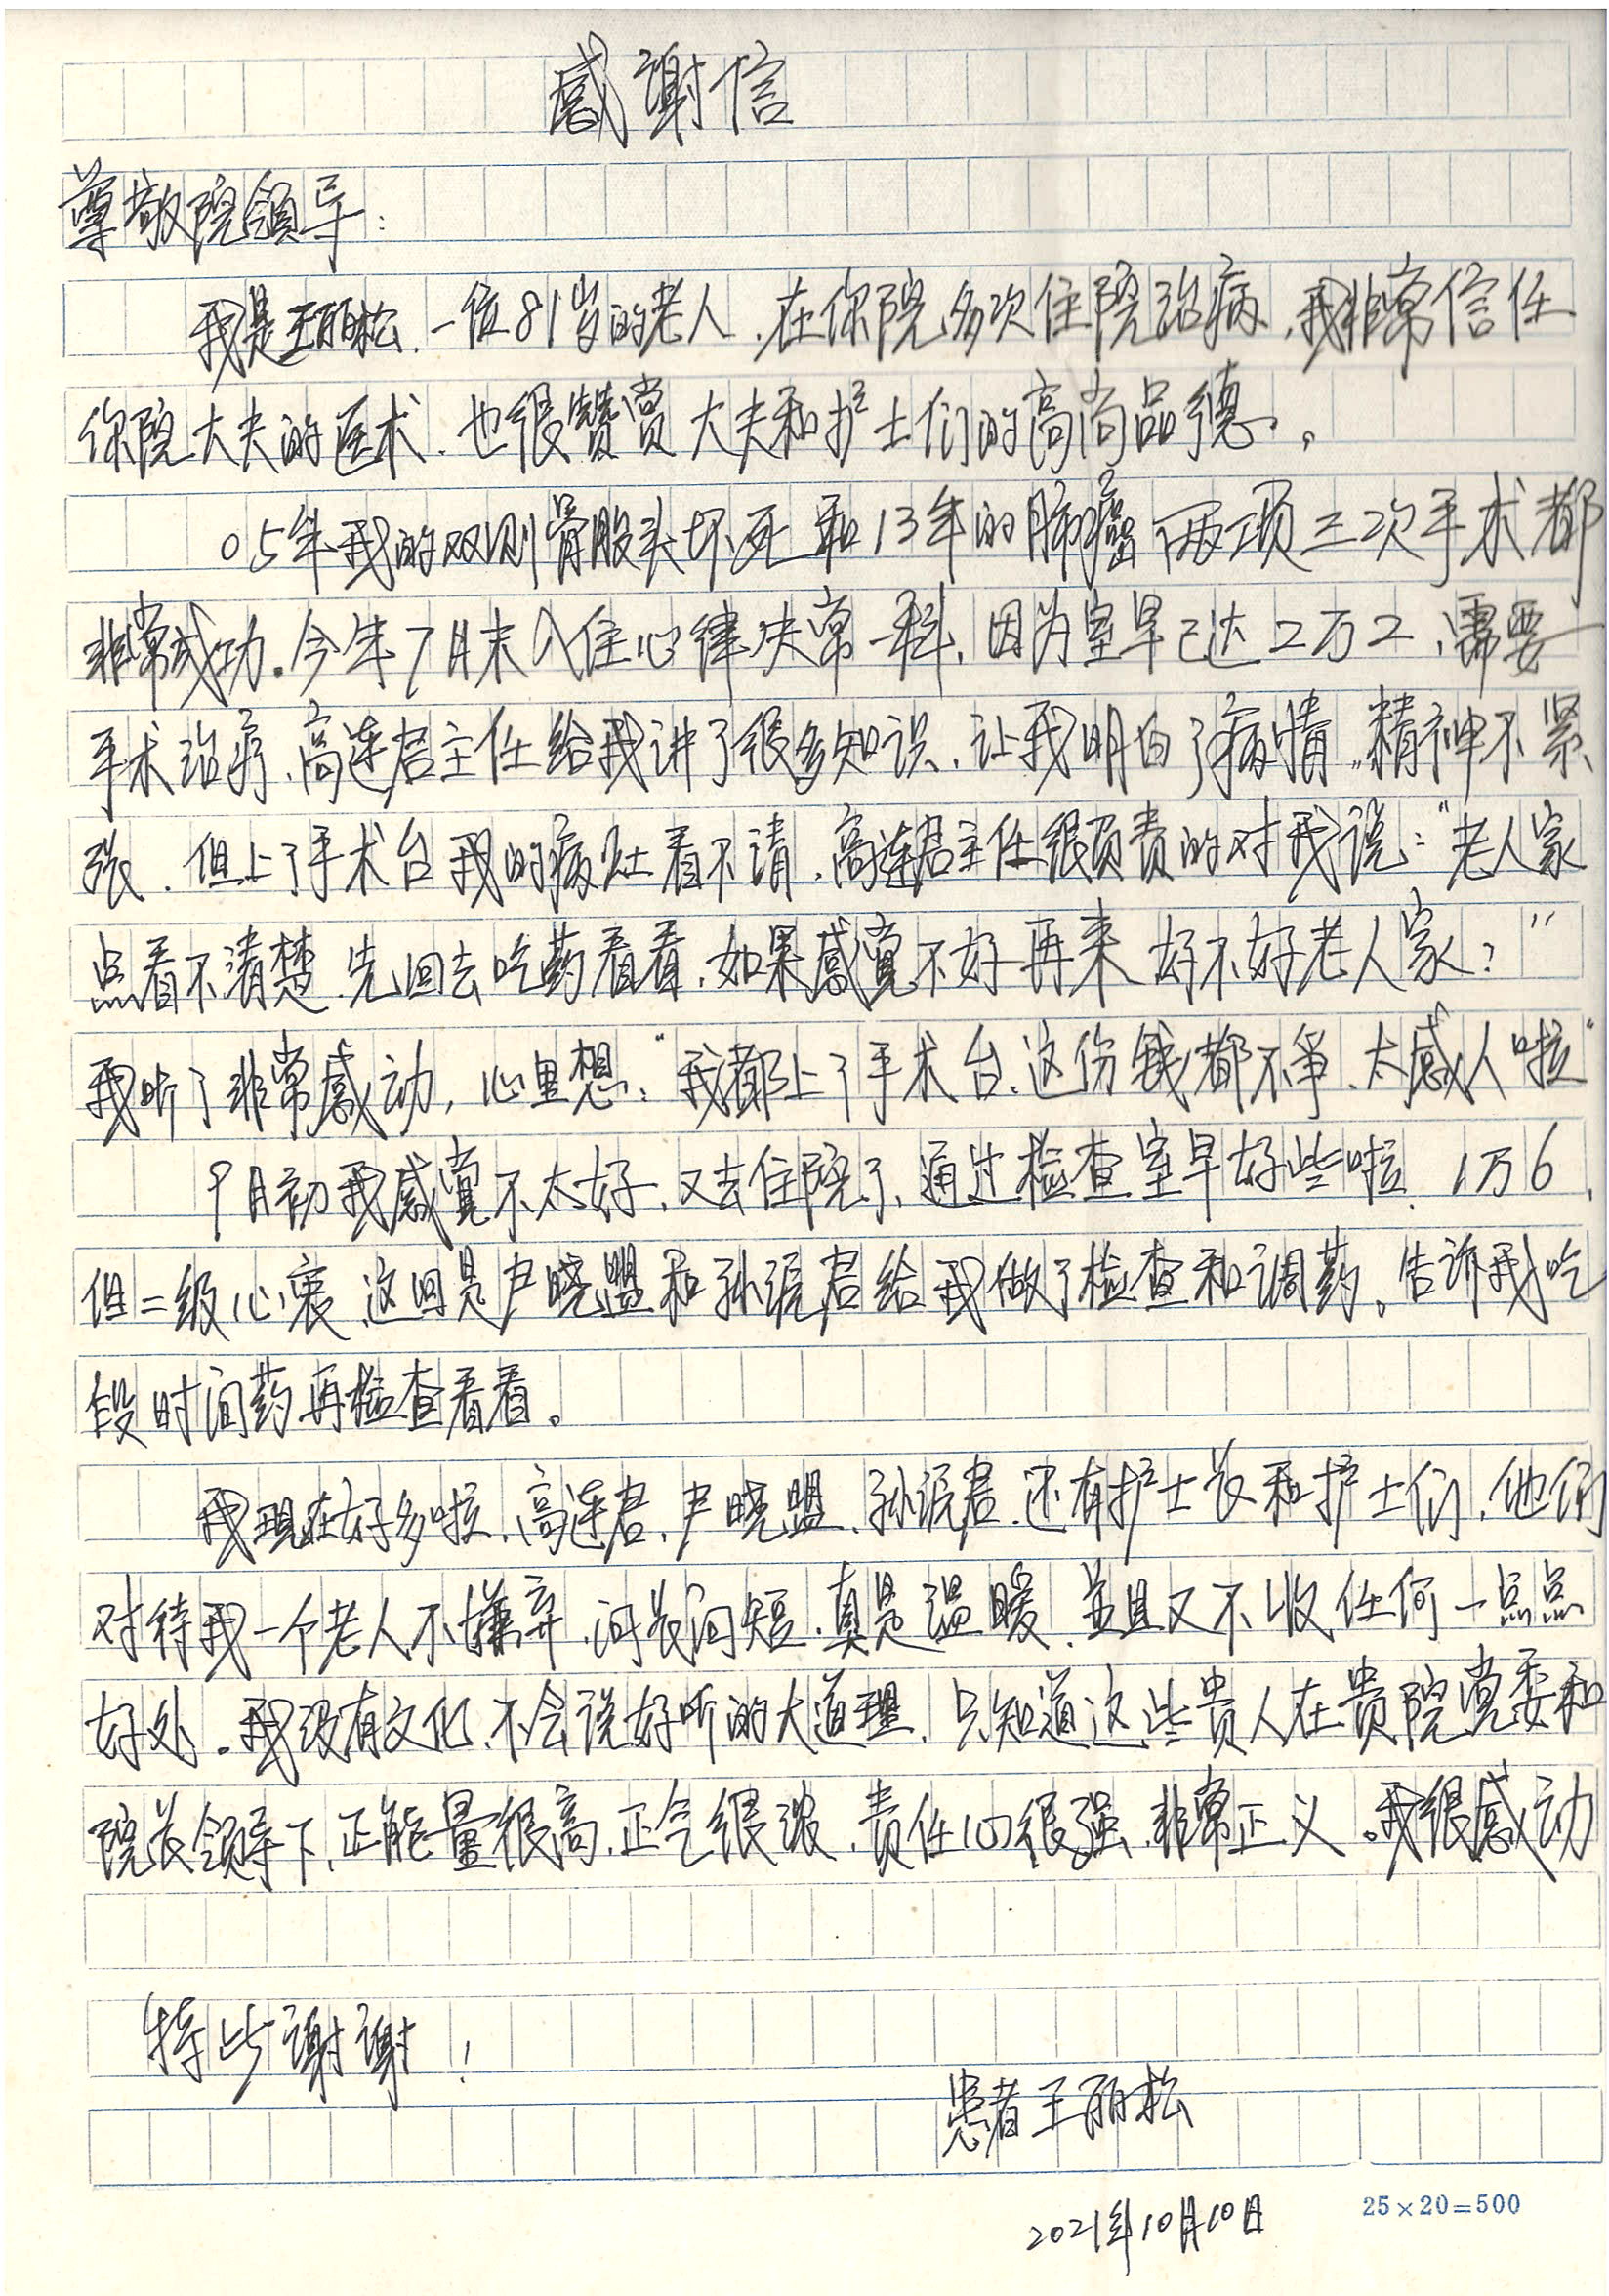 感谢信
尊敬院领导：
我是王丽松、一位81岁的老人、在你院多次住院治病、我非常信任
你院大夫的医术、也很赞赏大夫和护士们的高尚品德。
05年我的双侧骨股头坏死和13年的肺瘤两项三次手术都
非常成功。今年7月末入住心律失常一科、因为室早已达2万2、需要
手术治疗、高连君主任给我讲了很多知识、让我明白了病情。精神不紧
张、但上了手术台我的病灶看不清、高连君主任很负责的对我说：“老人家
点看不清楚、先回去吃药看看、如果感觉不好再来 好不好老人家？”
我听了非常感动，心里想：“我都上了手术台、这份钱都不争、太感人啦”
9月初我感觉不太好、又去住院了、通过检查室早好些啦、1万6、
但二级心衰、这回是卢晓盟和孙源君给我做了检查和调药。告诉我吃
段时间药再检查看看。
我现在好多啦、高连君、卢晓盟、孙源君、还有护士长和护士们、他们
对待我一个老人不嫌弃、问长问短、真是温暖、并且又不收任何一点点
好处。我没有文化、不会说好听的大道理、只知道这些贵人在贵院党委和
院长领导下、正能量很高、正气很浓、责任心很强、非常正义。我很感动
特此谢谢！
患者王丽松
2021年10月10日
25×20=500